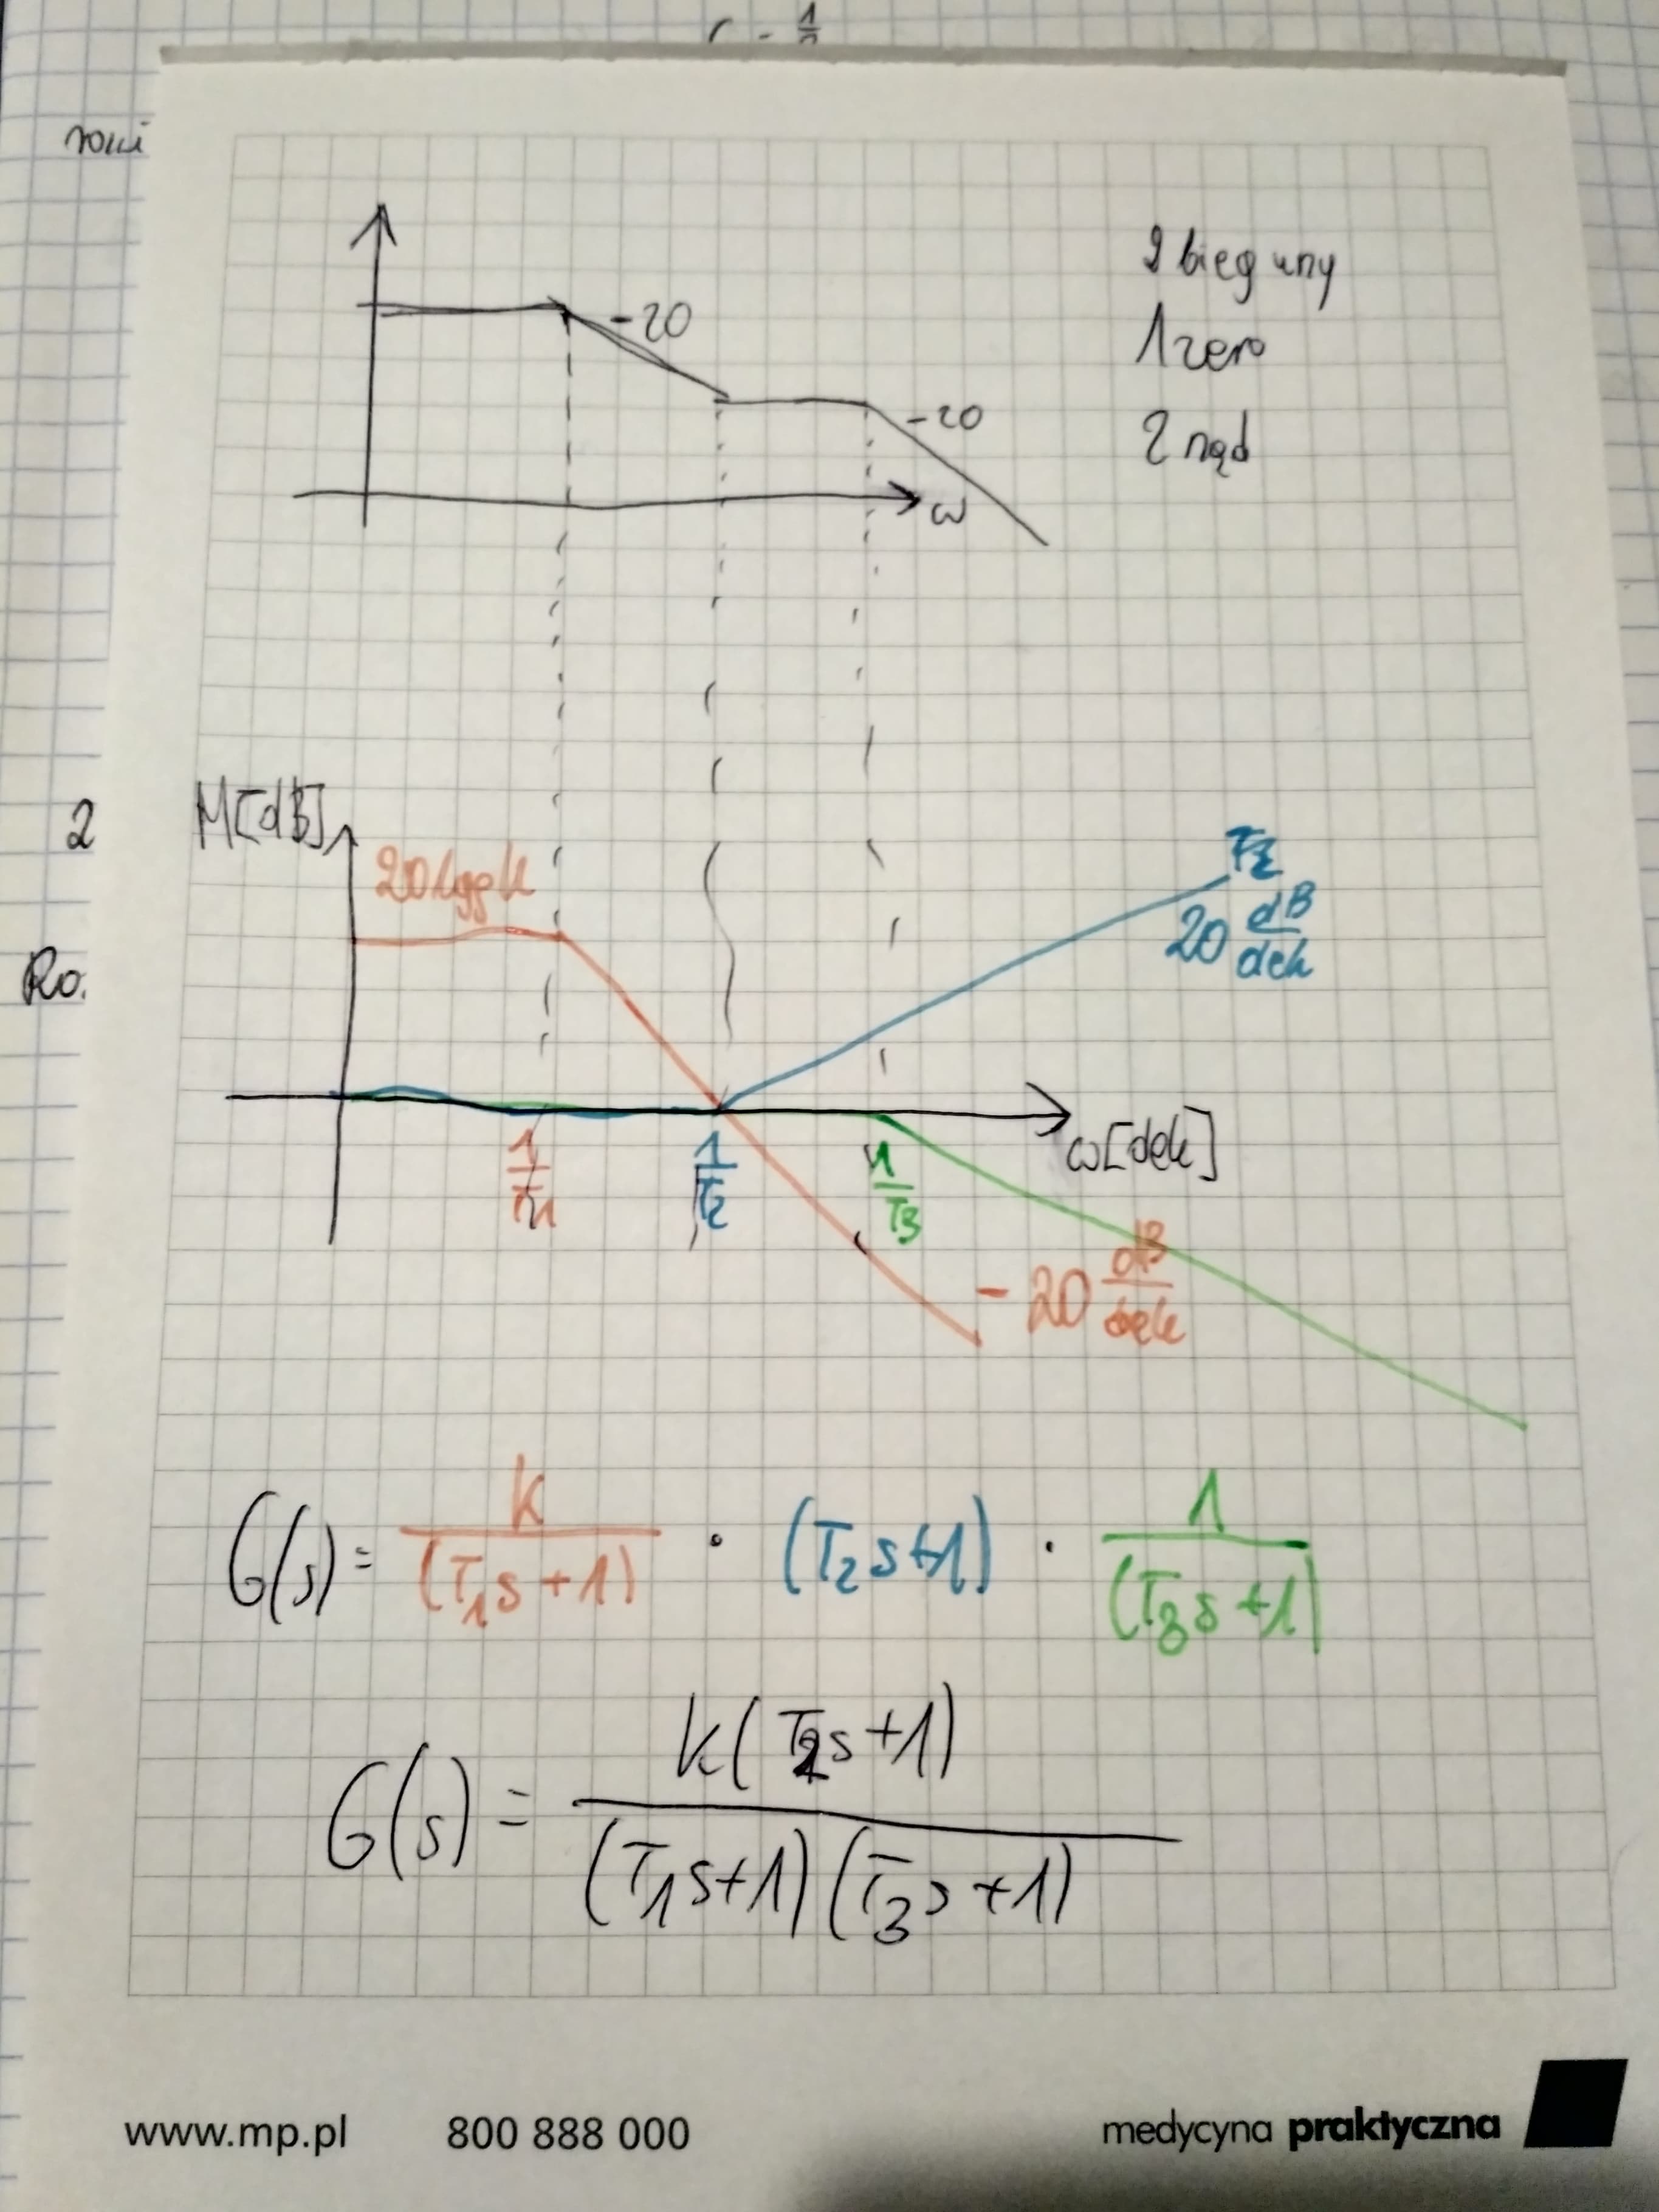 -20
2 bieguny
1 zero
-20
2 rząd
ω
2
M[dB]
20 log k
20 dB/dek
Ro.
ω[dek]
1/T1
1/T2
1/T3
-20 dB/dek
G(s) = k/(T1s+1) · (T2s+1) · 1/(T3s+1)
G(s) = k(T2s+1)/(T1s+1)(T3s+1)
www.mp.pl 800 888 000 medycyna praktyczna